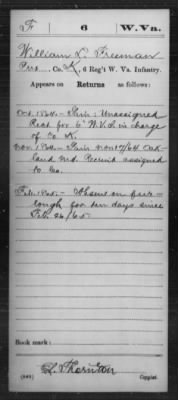 F 6 W.Va.
William L. Freeman
Pvt., Co. K, 6 Reg't W. Va. Infantry.
Appears on Returns as follows:
Oct. 1864.- Gain: Unassigned
Rect. for 6" W.V.I. in charge
of Co K.
Nov. 1864.- Gain nov 17/64 Oak-
land Md. Recruit assigned
to Co.
Feb. 1865.- Absent on fur-
lough for ten days since
Feb. 26/65.
Book mark:
L. Thornton
(546) Copyist.